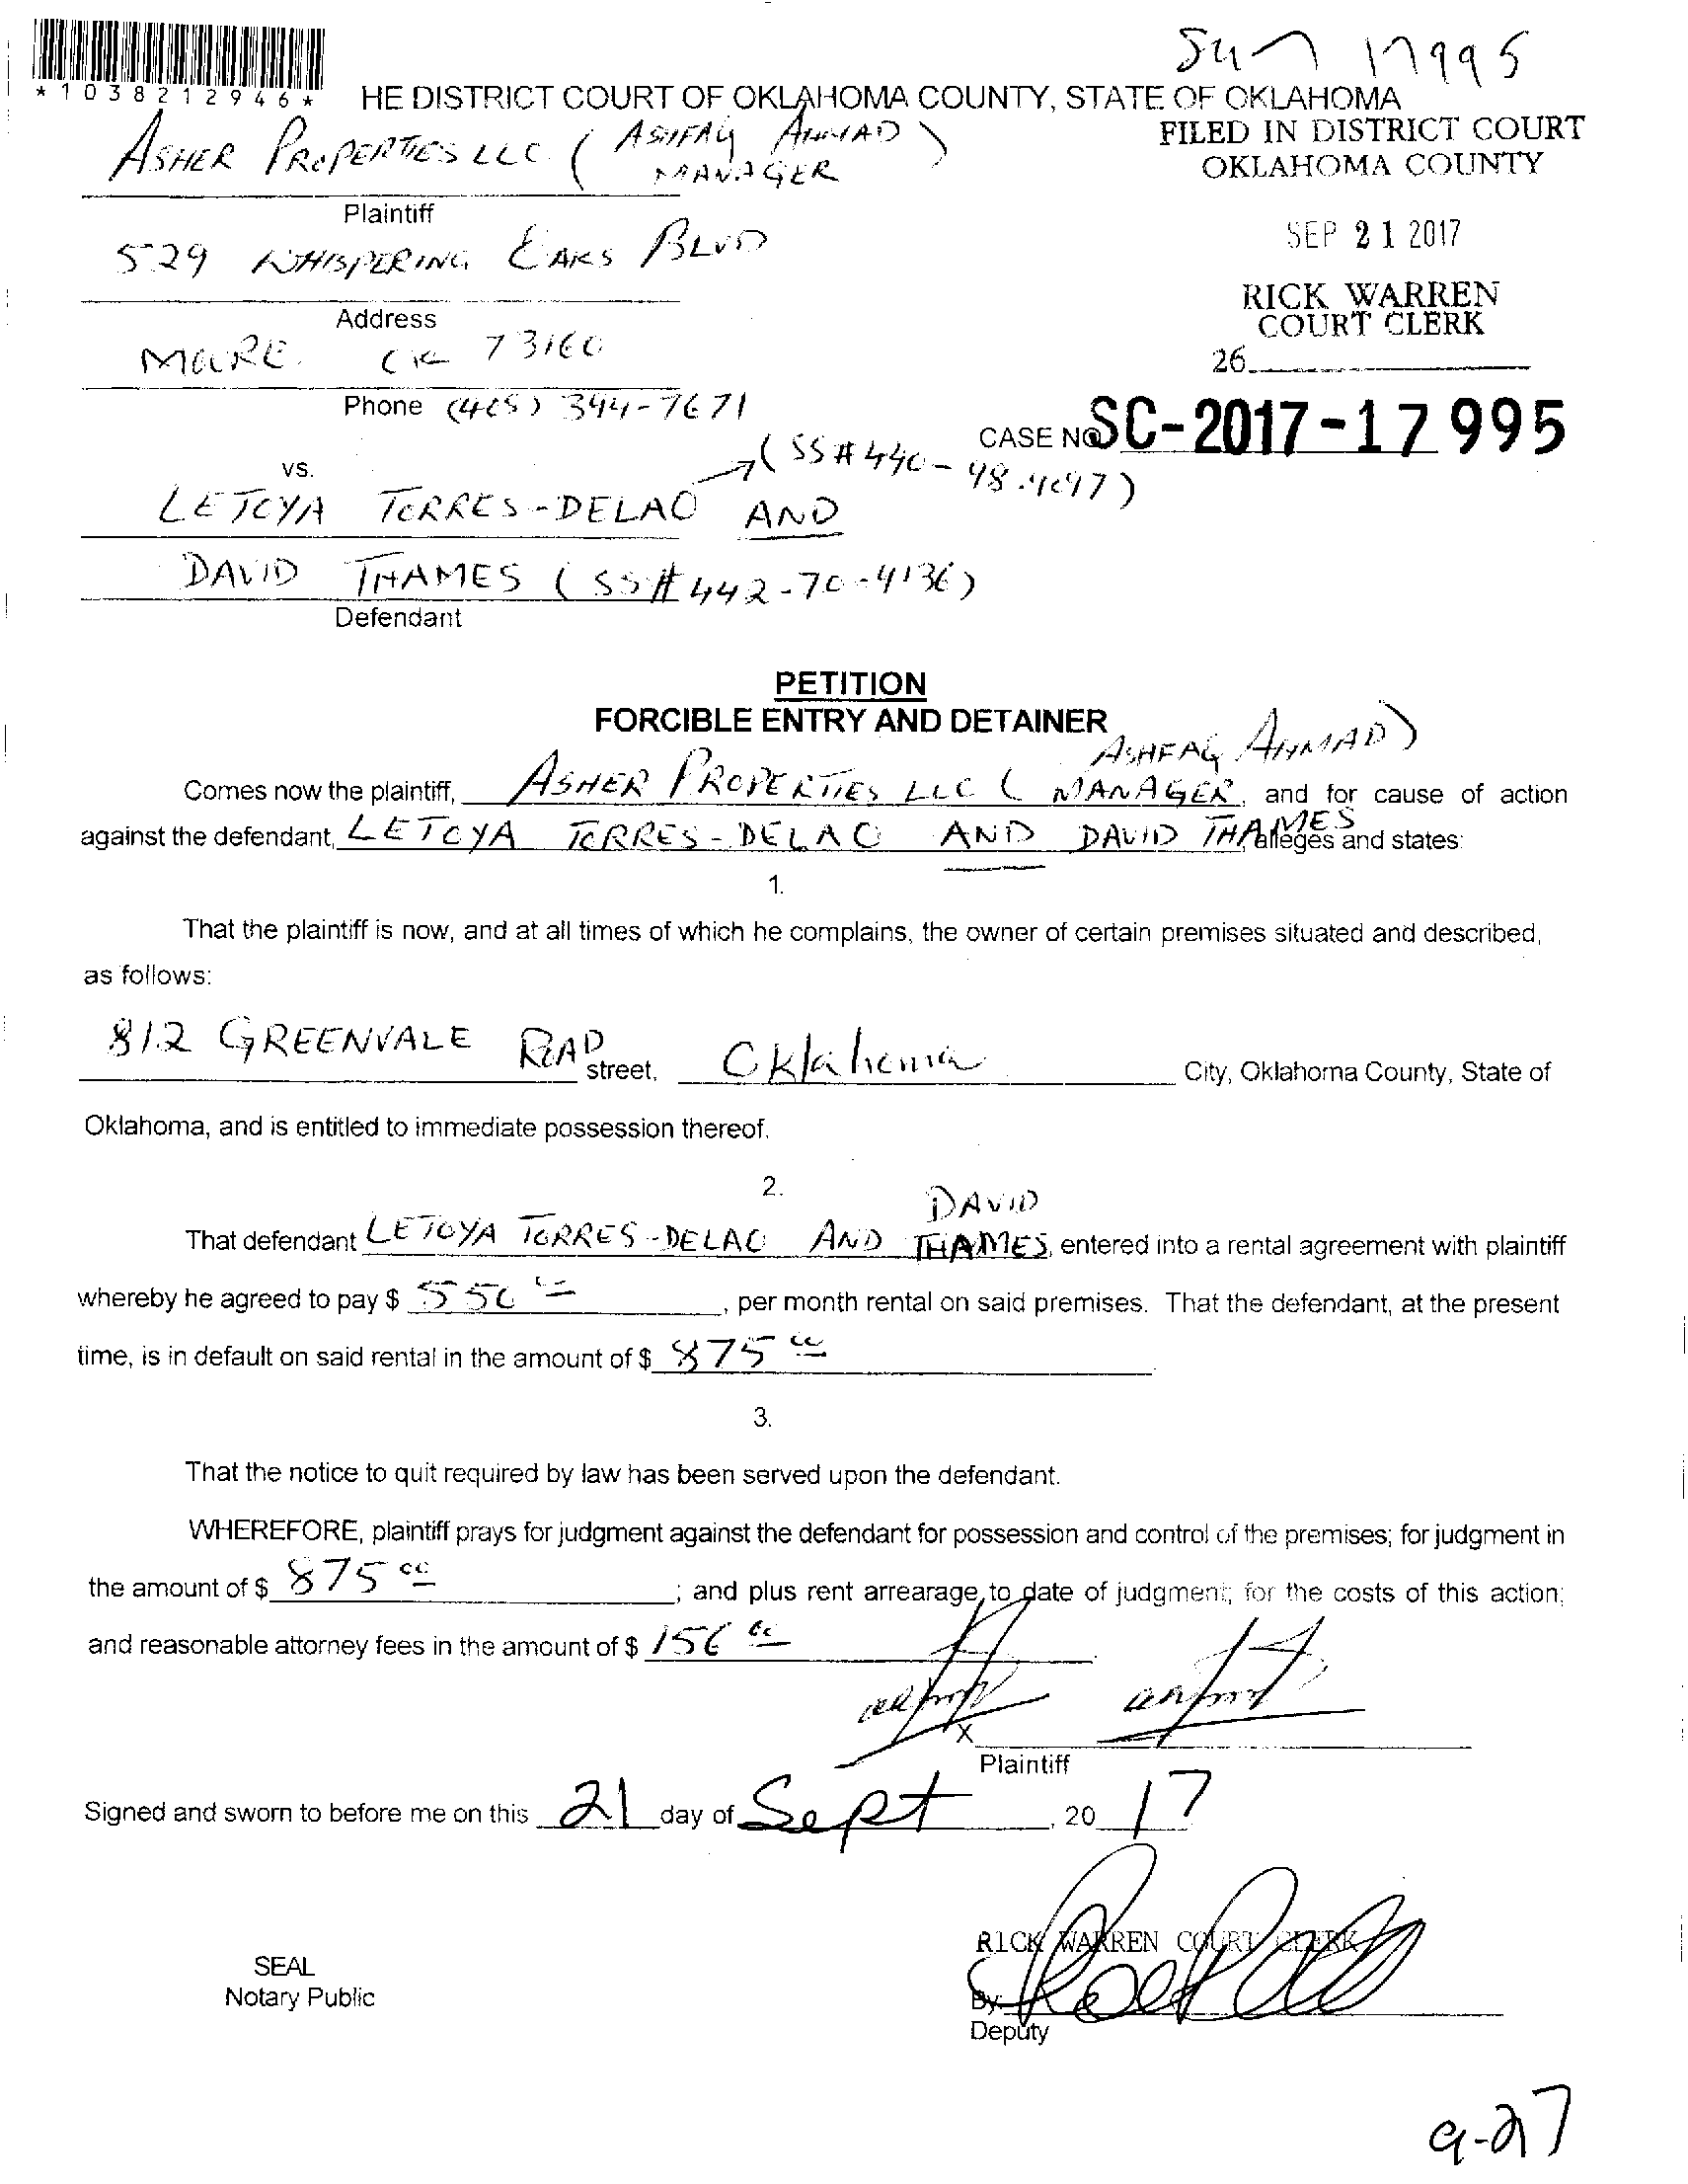 Sun 17995
*1038212946*
HE DISTRICT COURT OF OKLAHOMA COUNTY, STATE OF OKLAHOMA
FILED IN DISTRICT COURT
OKLAHOMA COUNTY
ASHER PROPERTIES LLC ( ASHFAQ AHMAD )
MANAGER
Plaintiff
SEP 21 2017
529 WHISPERING OAKS BLVD
Address
RICK WARREN
COURT CLERK
MOORE. OK 73160
26
Phone (405) 394-7671
CASE NO SC-2017-17995
vs.
(SS# [redacted])
LETOYA TORRES-DELAO AND
DAVID THAMES (SS# [redacted])
Defendant
PETITION
FORCIBLE ENTRY AND DETAINER
ASHFAQ AHMAD)
Comes now the plaintiff, ASHER PROPERTIES LLC ( MANAGER, and for cause of action
against the defendant, LETOYA TORRES-DELAO AND DAVID THAMES alleges and states:
1.
That the plaintiff is now, and at all times of which he complains, the owner of certain premises situated and described,
as follows:
812 GREENVALE ROAD street, Oklahoma City, Oklahoma County, State of
Oklahoma, and is entitled to immediate possession thereof.
2.
DAVID
That defendant LETOYA TORRES-DELAO AND THAMES, entered into a rental agreement with plaintiff
whereby he agreed to pay $ 550 00, per month rental on said premises. That the defendant, at the present
time, is in default on said rental in the amount of $ 875 00.
3.
That the notice to quit required by law has been served upon the defendant.
WHEREFORE, plaintiff prays for judgment against the defendant for possession and control of the premises; for judgment in
the amount of $ 875 00; and plus rent arrearage, to date of judgment; for the costs of this action;
and reasonable attorney fees in the amount of $ 156 00.
X
Plaintiff
Signed and sworn to before me on this 21 day of Sept, 2017
RICK WARREN COURT CLERK
SEAL
Notary Public
By
Deputy
9-27